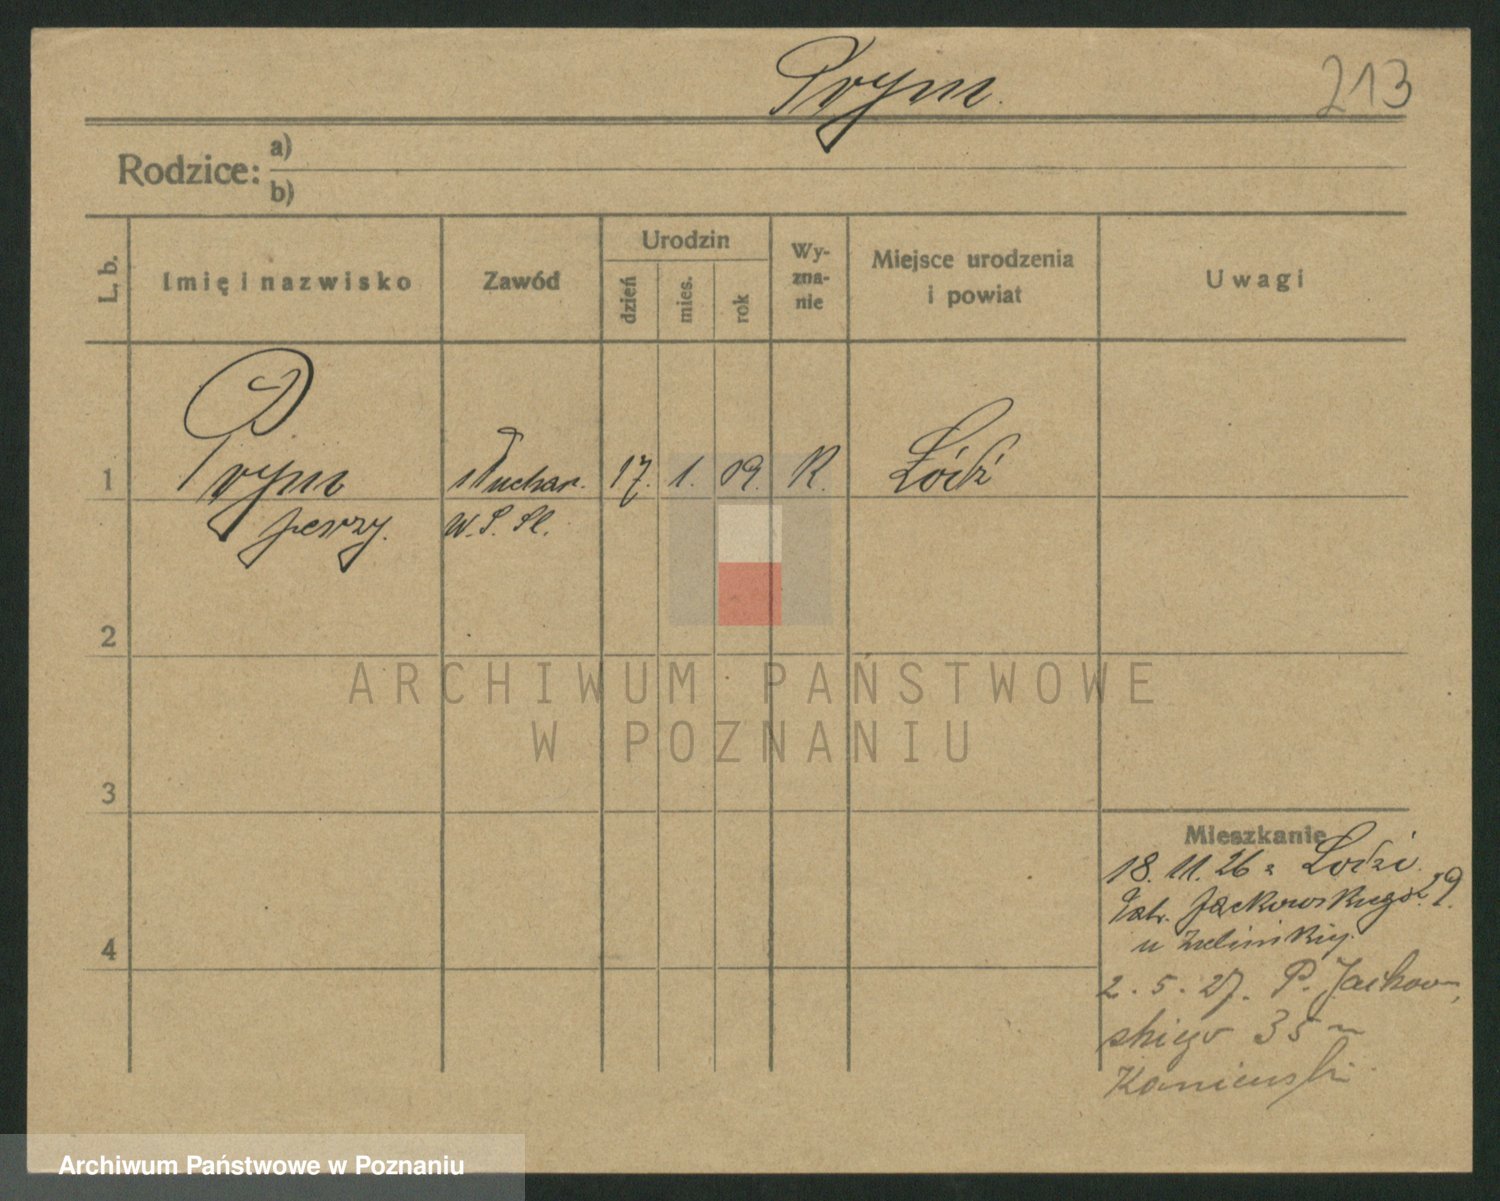 Prym.
213
Rodzice: a)
b)
L. b.
Imię i nazwisko
Zawód
Urodzin
dzień
mies.
rok
Wy-
zna-
nie
Miejsce urodzenia
i powiat
Uwagi
1
Prym
Jerzy.
słuchar.
W. S. Sl.
17.
1.
09.
R.
Łódź
2
3
4
Mieszkanie
18. 11. 26 z Łodzi.
Jackowskiego 29.
u
2. 5. 27. P. Jackow-
skiego 35
ARCHIWUM PAŃSTWOWE
W POZNANIU
Archiwum Państwowe w Poznaniu